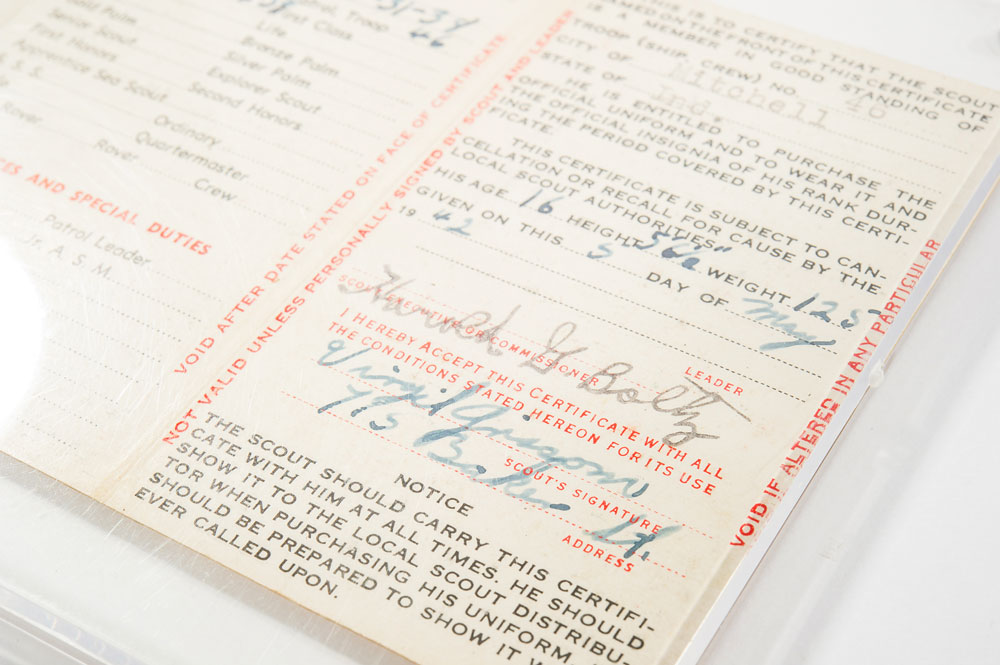 31-34
Troop
First Class
Gold Palm
Life
Bronze Palm
Scout
Silver Palm
First Honors
Explorer Scout
Apprentice Sea Scout
Second Honors
S. S.
Ordinary
Rover
Quartermaster
Rover
Crew
CES AND SPECIAL DUTIES
Patrol Leader
Jr. A. S. M.
VOID AFTER DATE STATED ON FACE OF CERTIFICATE
NOT VALID UNLESS PERSONALLY SIGNED BY SCOUT AND LEADER
THIS IS TO CERTIFY THAT THE SCOUT
NAMED ON THE FRONT OF THIS CERTIFICATE
IS A MEMBER IN GOOD STANDING OF
TROOP (SHIP CREW) NO. 40
CITY OF Mitchell
STATE OF Ind.
HE IS ENTITLED TO PURCHASE THE
OFFICIAL UNIFORM AND TO WEAR IT AND
THE OFFICIAL INSIGNIA OF HIS RANK DUR-
ING THE PERIOD COVERED BY THIS CERTI-
FICATE.
THIS CERTIFICATE IS SUBJECT TO CAN-
CELLATION OR RECALL FOR CAUSE BY THE
LOCAL SCOUT AUTHORITIES.
HIS AGE 16 HEIGHT WEIGHT 125
GIVEN ON THIS 5 DAY OF May
19 42
LEADER
SCOUT EXECUTIVE OR COMMISSIONER
G Boltz
I HEREBY ACCEPT THIS CERTIFICATE WITH ALL
THE CONDITIONS STATED HEREON FOR ITS USE
Virgil
SCOUT'S SIGNATURE
715 Baker St.
ADDRESS
VOID IF ALTERED IN ANY PARTICULAR
NOTICE
THE SCOUT SHOULD CARRY THIS CERTIFI-
CATE WITH HIM AT ALL TIMES. HE SHOULD
SHOW IT TO THE LOCAL SCOUT DISTRIBU-
TOR WHEN PURCHASING HIS UNIFORM
SHOULD BE PREPARED TO SHOW IT
EVER CALLED UPON.